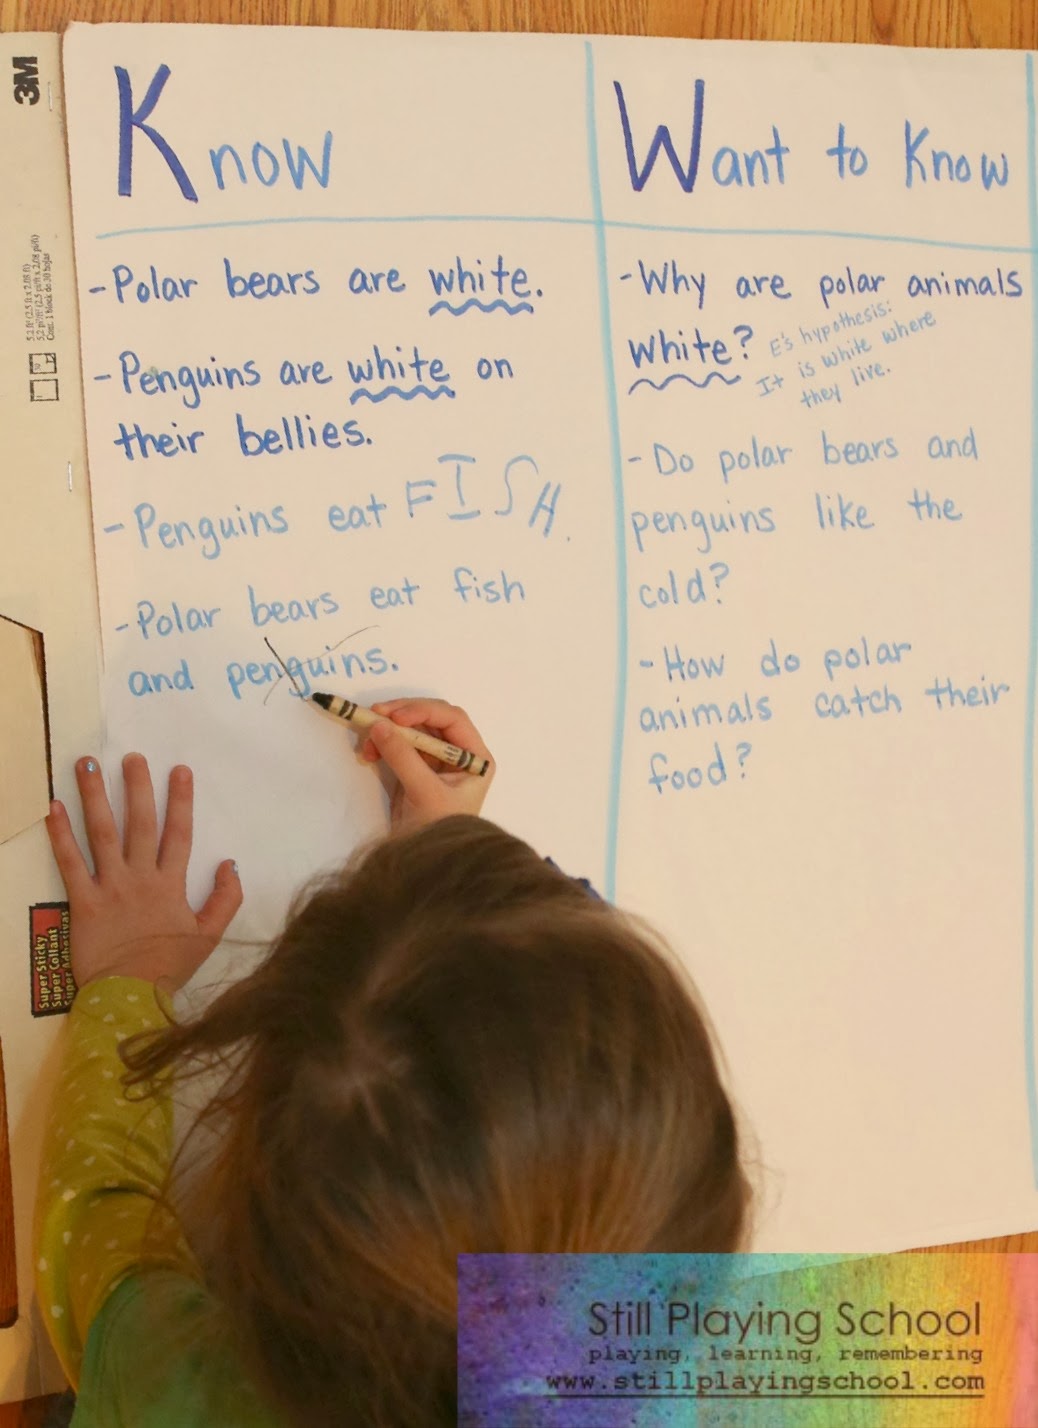 3M
Know
Want to Know
-Polar bears are white.
-Penguins are white on
their bellies.
-Penguins eat FISH.
-Polar bears eat fish
and penguins.
-Why are polar animals
white?
E's hypothesis:
It is white where
they live.
-Do polar bears and
penguins like the
cold?
-How do polar
animals catch their
food?
Super Sticky
Super Collant
Super Adhesivas
Still Playing School
playing, learning, remembering
www.stillplayingschool.com